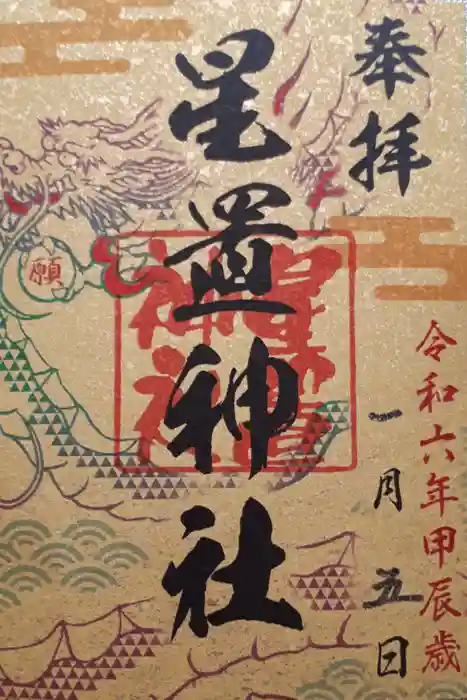 奉拝
星置神社
令和六年甲辰歳
一月五日
願
星置神社